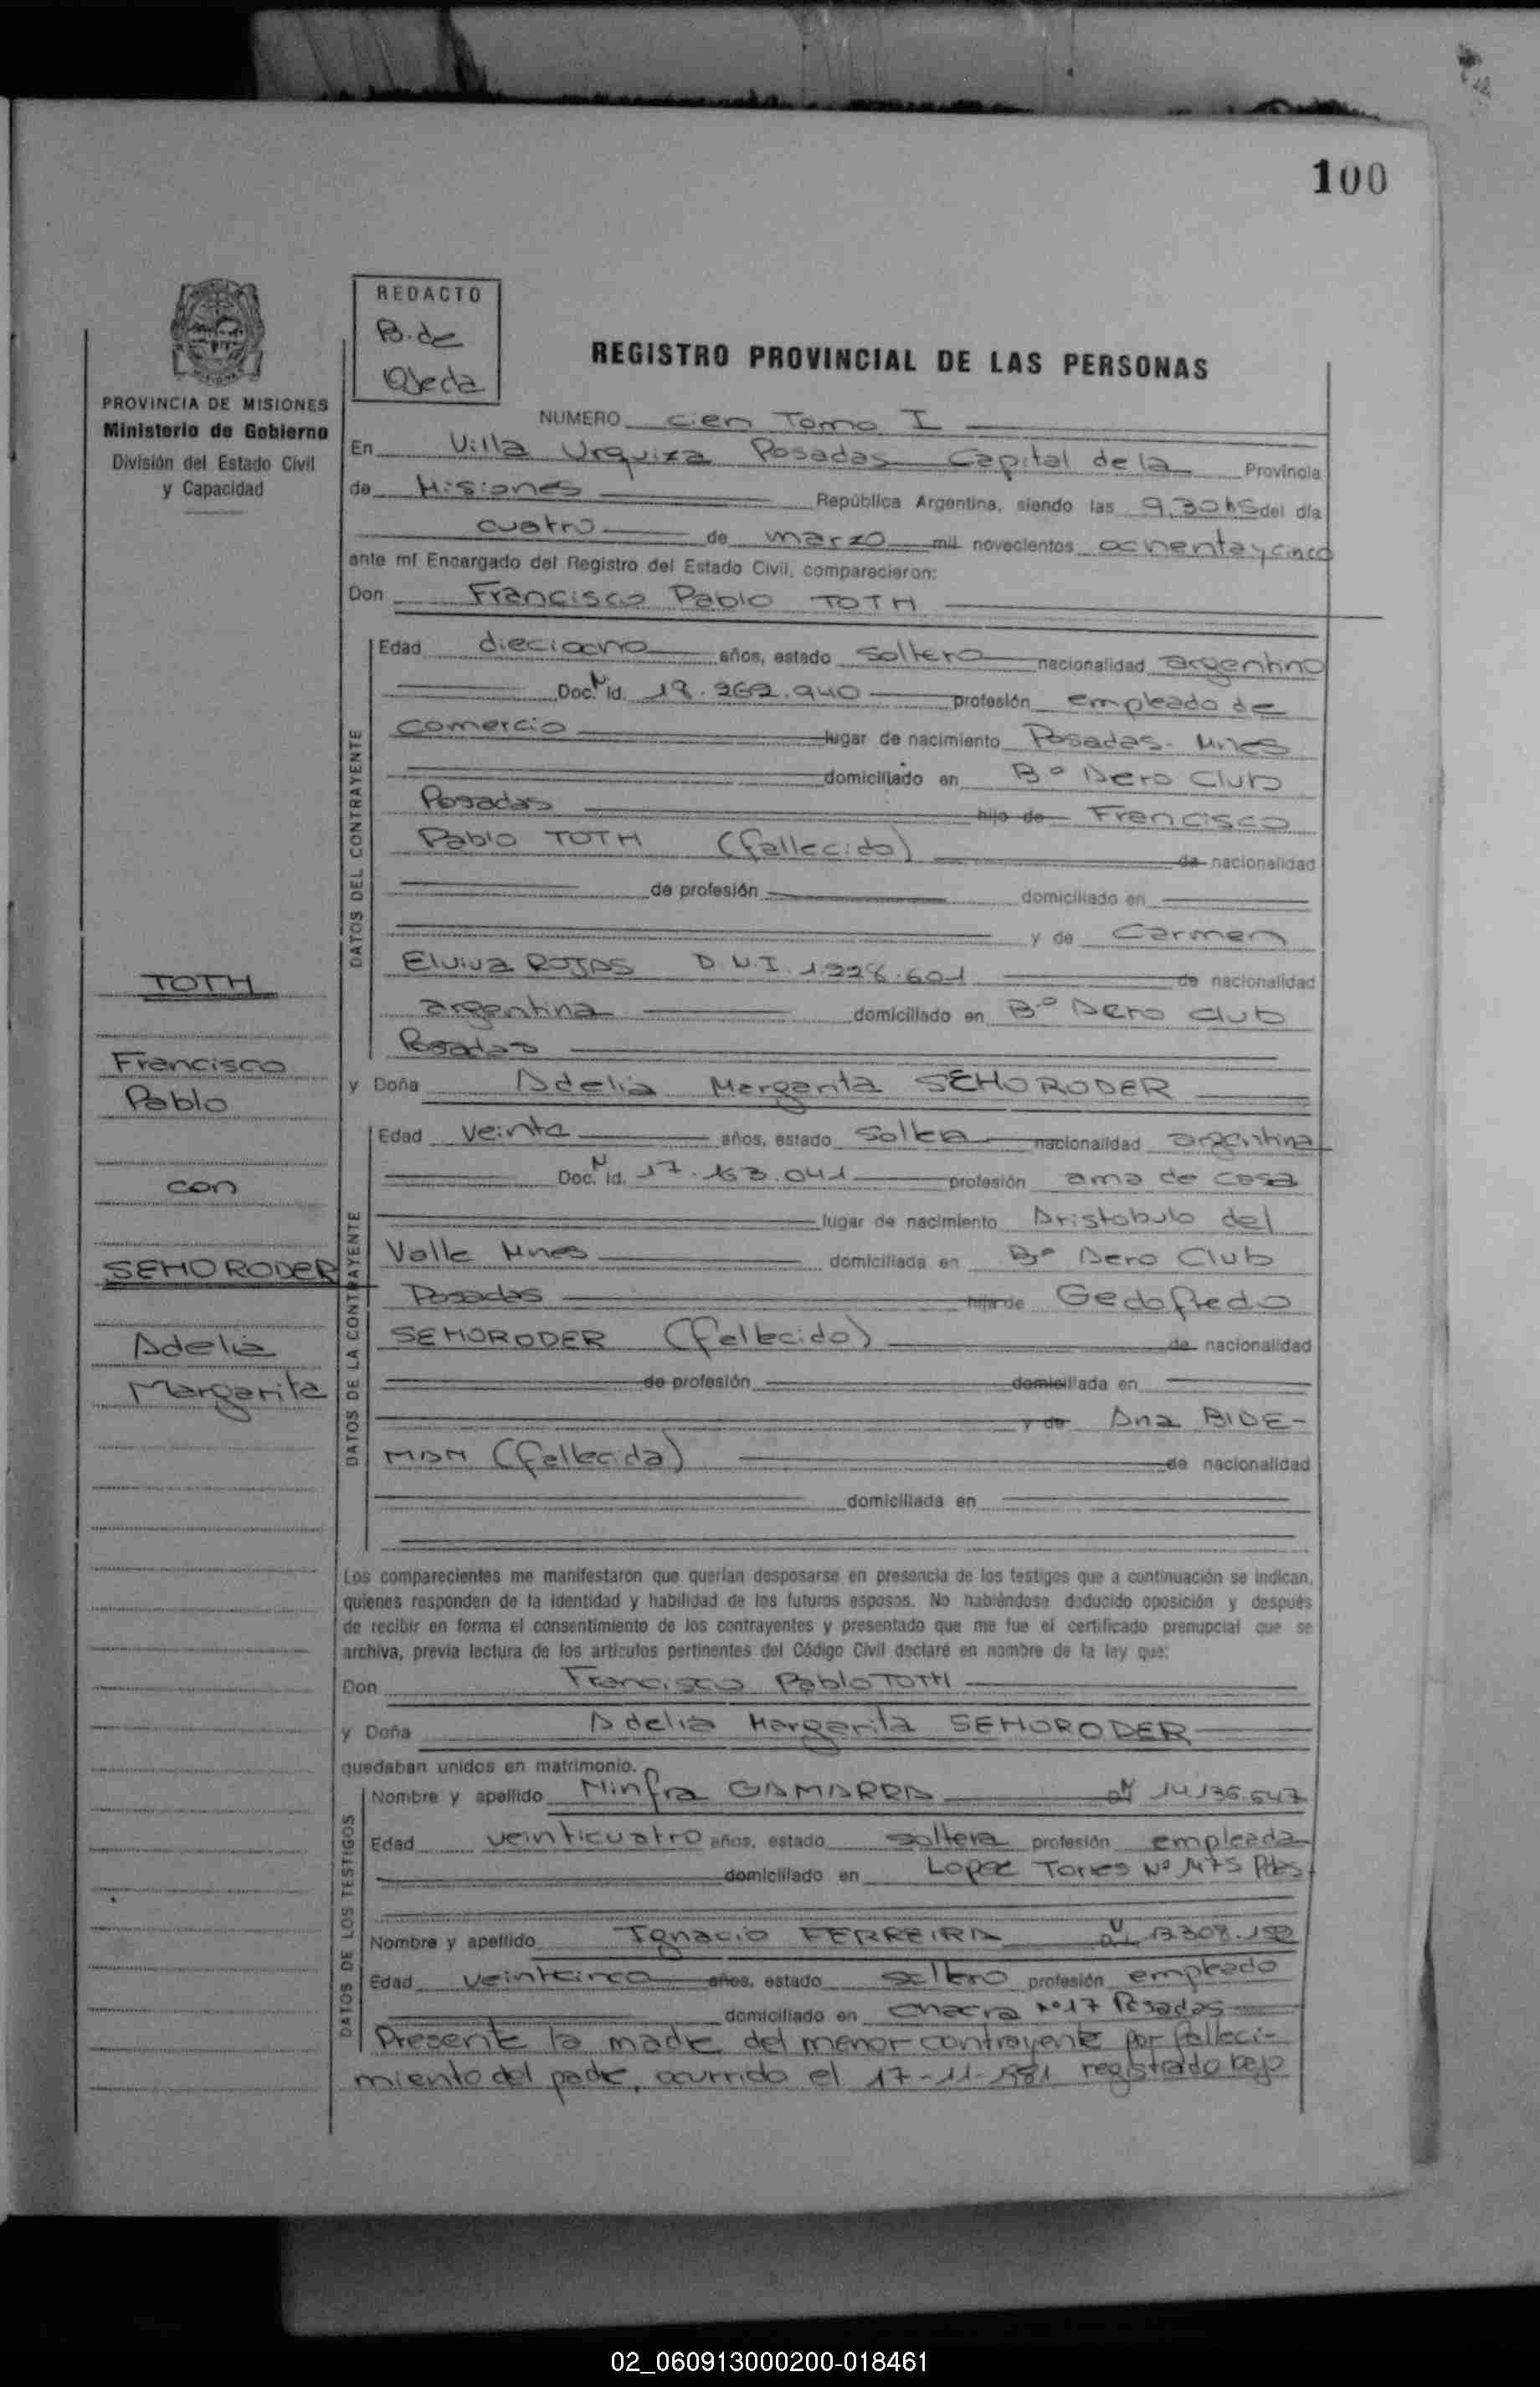 100
REDACTO
B. de
Ojeda
PROVINCIA DE MISIONES
Ministerio de Gobierno
División del Estado Civil
y Capacidad
REGISTRO PROVINCIAL DE LAS PERSONAS
NUMERO cien Tomo I
En Villa Urquiza Posadas Capital de la Provincia
de Misiones República Argentina, siendo las 9,30 hs del día
cuatro de marzo mil novecientos ochenta y cinco
ante mí Encargado del Registro del Estado Civil, comparecieron:
Don Francisco Pablo TOTH
DATOS DEL CONTRAYENTE
Edad dieciocho años, estado soltero nacionalidad argentino
Doc. N Id. 18.262.940 profesión empleado de
comercio lugar de nacimiento Posadas - Mnes
domiciliado en Bº Aero Club
Posadas hijo de Francisco
Pablo TOTH (fallecido) de nacionalidad
de profesión domiciliado en
y de Carmen
Elviva ROJAS D.N.I. 1.228.601 de nacionalidad
argentina domiciliado en Bº Aero Club
Posadas
y Doña Adelia Margarita SEHORODER
DATOS DE LA CONTRAYENTE
Edad veinte años, estado soltera nacionalidad argentina
Doc. N Id. 17.153.041 profesión ama de casa
lugar de nacimiento Aristobulo del
Valle Mnes domiciliada en Bº Aero Club
Posadas hija de Gedofredo
SEHORODER (fallecido) de nacionalidad
de profesión domiciliada en
y de Ana BIDE-
MAN (fallecida) de nacionalidad
domiciliada en
TOTH
Francisco
Pablo
con
SEHORODER
Adelia
Margarita
Los comparecientes me manifestaron que querían desposarse en presencia de los testigos que a continuación se indican,
quienes responden de la identidad y habilidad de los futuros esposos. No habiéndose deducido oposición y después
de recibir en forma el consentimiento de los contrayentes y presentado que me fue el certificado prenupcial que se
archiva, previa lectura de los artículos pertinentes del Código Civil declaré en nombre de la ley que:
Don Francisco Pablo TOTH
y Doña Adelia Margarita SEHORODER
quedaban unidos en matrimonio.
DATOS DE LOS TESTIGOS
Nombre y apellido Ninfra GAMARRA 14.136.647
Edad veinticuatro años, estado soltera profesión empleada
domiciliado en Lopez Torres Nº 1475 Pdas
Nombre y apellido Ignacio FERREIRA 13.308.152
Edad veinticinco años, estado soltero profesión empleado
domiciliado en chacra Nº 17 Posadas
Presente la madre del menor contrayente por falleci-
miento del padre, ocurrido el 17-11-1981 registrado bajo
02_060913000200-018461